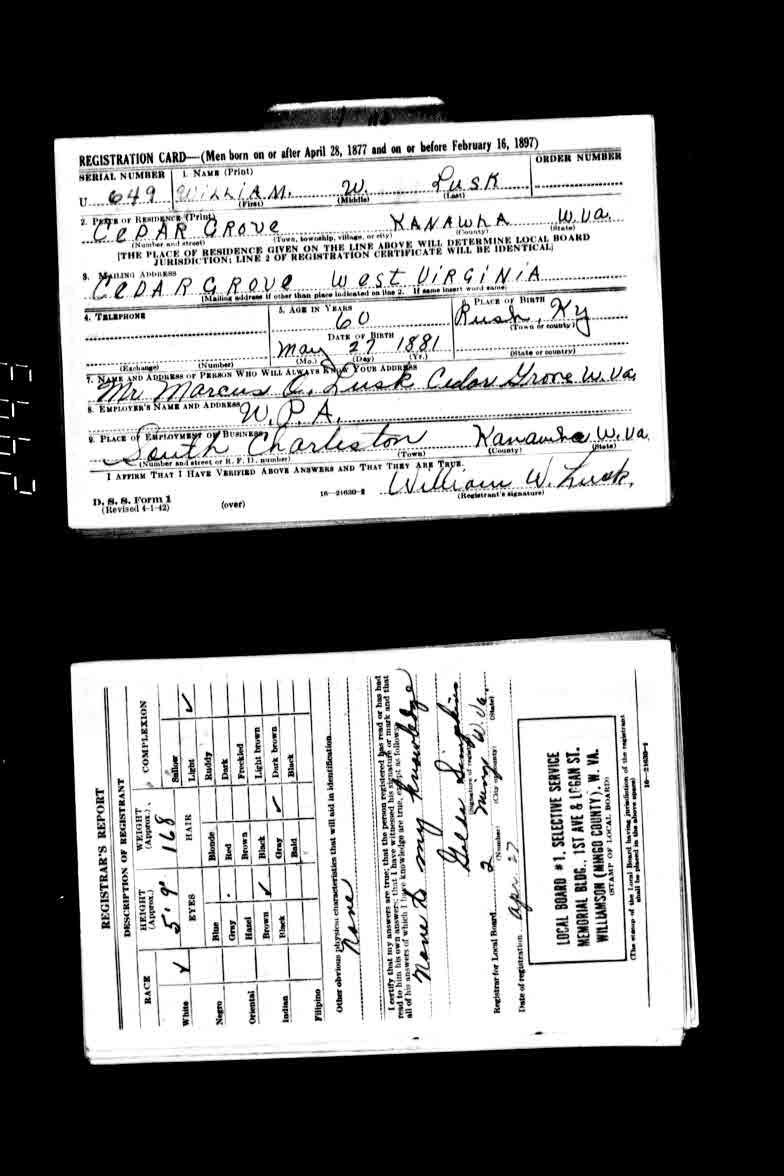 REGISTRATION CARD—(Men born on or after April 28, 1877 and on or before February 16, 1897)
SERIAL NUMBER 1. NAME (Print) ORDER NUMBER
U 649 WILLIAM. W. LUSK
(First) (Middle) (Last)
2. PLACE OF RESIDENCE (Print)
CEDAR GROVE KANAWHA W.Va.
(Number and street) (Town, township, village, or city) (County) (State)
[THE PLACE OF RESIDENCE GIVEN ON THE LINE ABOVE WILL DETERMINE LOCAL BOARD
JURISDICTION; LINE 2 OF REGISTRATION CERTIFICATE WILL BE IDENTICAL]
3. MAILING ADDRESS
CEDAR GROVE WEST VIRGINIA
[Mailing address if other than place indicated on line 2. If same insert word same]
4. TELEPHONE 5. AGE IN YEARS PLACE OF BIRTH
60 Rush, Ky
DATE OF BIRTH (Town or county)
May 27 1881
(Exchange) (Number) (Mo.) (Day) (Yr.) (State or country)
7. NAME AND ADDRESS OF PERSON WHO WILL ALWAYS KNOW YOUR ADDRESS
Mr Marcus O. Lusk Cedar Grove W.Va.
8. EMPLOYER'S NAME AND ADDRESS
W.P.A.
9. PLACE OF EMPLOYMENT OR BUSINESS
South Charleston Kanawha W.Va.
(Number and street or R. F. D. number) (Town) (County) (State)
I AFFIRM THAT I HAVE VERIFIED ABOVE ANSWERS AND THAT THEY ARE TRUE.
William W. Lusk.
D. S. S. Form 1 16—21630-2 (Registrant's signature)
(Revised 4-1-42) (over)
REGISTRAR'S REPORT
DESCRIPTION OF REGISTRANT
RACE HEIGHT (Approx.) WEIGHT (Approx.) COMPLEXION
5' 9" 168 Sallow
White ✓ EYES HAIR Light ✓
Negro Blue Blonde Ruddy
Gray Red Dark
Oriental Hazel Brown Freckled
Brown ✓ Black Light brown
Indian Black Gray ✓ Dark brown
Bald Black
Filipino
Other obvious physical characteristics that will aid in identification
None
I certify that my answers are true; that the person registered has read or has had
read to him his own answers; that I have witnessed his signature or mark and that
all of his answers of which I have knowledge are true, except as follows:
None to my knowledge
Simpkins
(Signature of registrar)
Registrar for Local Board 2 Mingo W. Va.
(Number) (City or county) (State)
Date of registration Apr. 27
LOCAL BOARD #1, SELECTIVE SERVICE
MEMORIAL BLDG., 1ST AVE & LOGAN ST.
WILLIAMSON (MINGO COUNTY), W. VA.
(STAMP OF LOCAL BOARD)
(The stamp of the Local Board having jurisdiction of the registrant
shall be placed in the above space)
16—21630-1